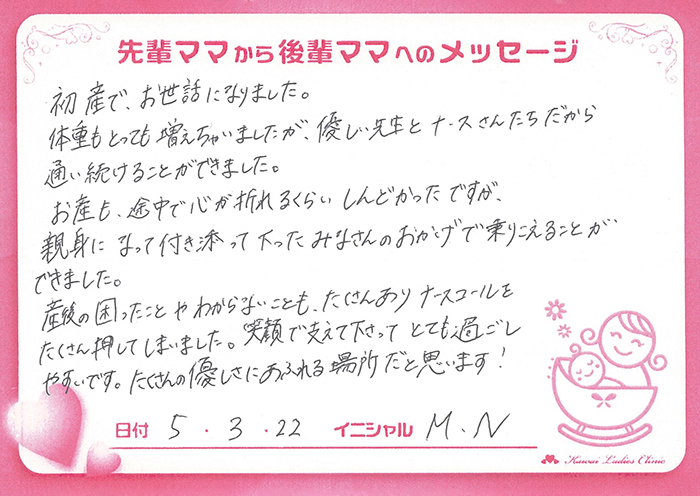 先輩ママから後輩ママへのメッセージ
初産で、お世話になりました。
体重もとっても増えちゃいましたが、優しい先生とナースさんたちだから
通い続けることができました。
お産も、途中で心が折れるくらいしんどかったですが、
親身になって付き添って下ったみなさんのおかげで乗りこえることが
できました。
産後の困ったことやわからないことも、たくさんありナースコールを
たくさん押してしまいました。笑顔で支えて下さってとても過ごし
やすいです。たくさんの優しさにあふれる場所だと思います!
日付 5・3・22 イニシャル M・N
Kawai Ladies Clinic